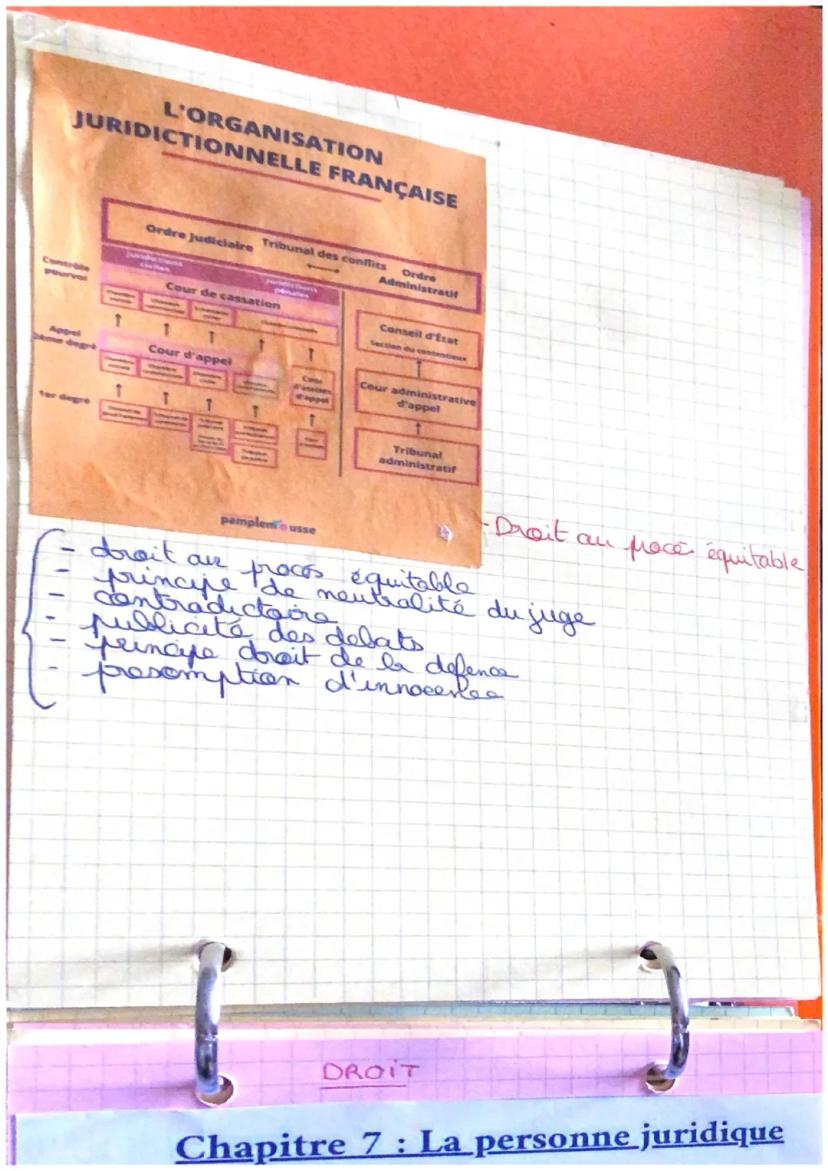 L'ORGANISATION
JURIDICTIONNELLE FRANÇAISE
Ordre Judiciaire Tribunal des conflits Ordre Administratif
Juridictions civiles
Juridictions pénales
Contrôle pourvoi
Cour de cassation
Conseil d'État
Section du contentieux
Appel
2ème degré
Cour d'appel
Cour d'assises d'appel
Cour administrative d'appel
1er degré
Tribunal administratif
pamplemousse
- Droit au procé équitable
- droit au procès équitable
- principe de neutralité du juge
- contradictoire
- publicité des debats
- principe droit de la defence
- presomption d'innocence
DROIT
Chapitre 7 : La personne juridique